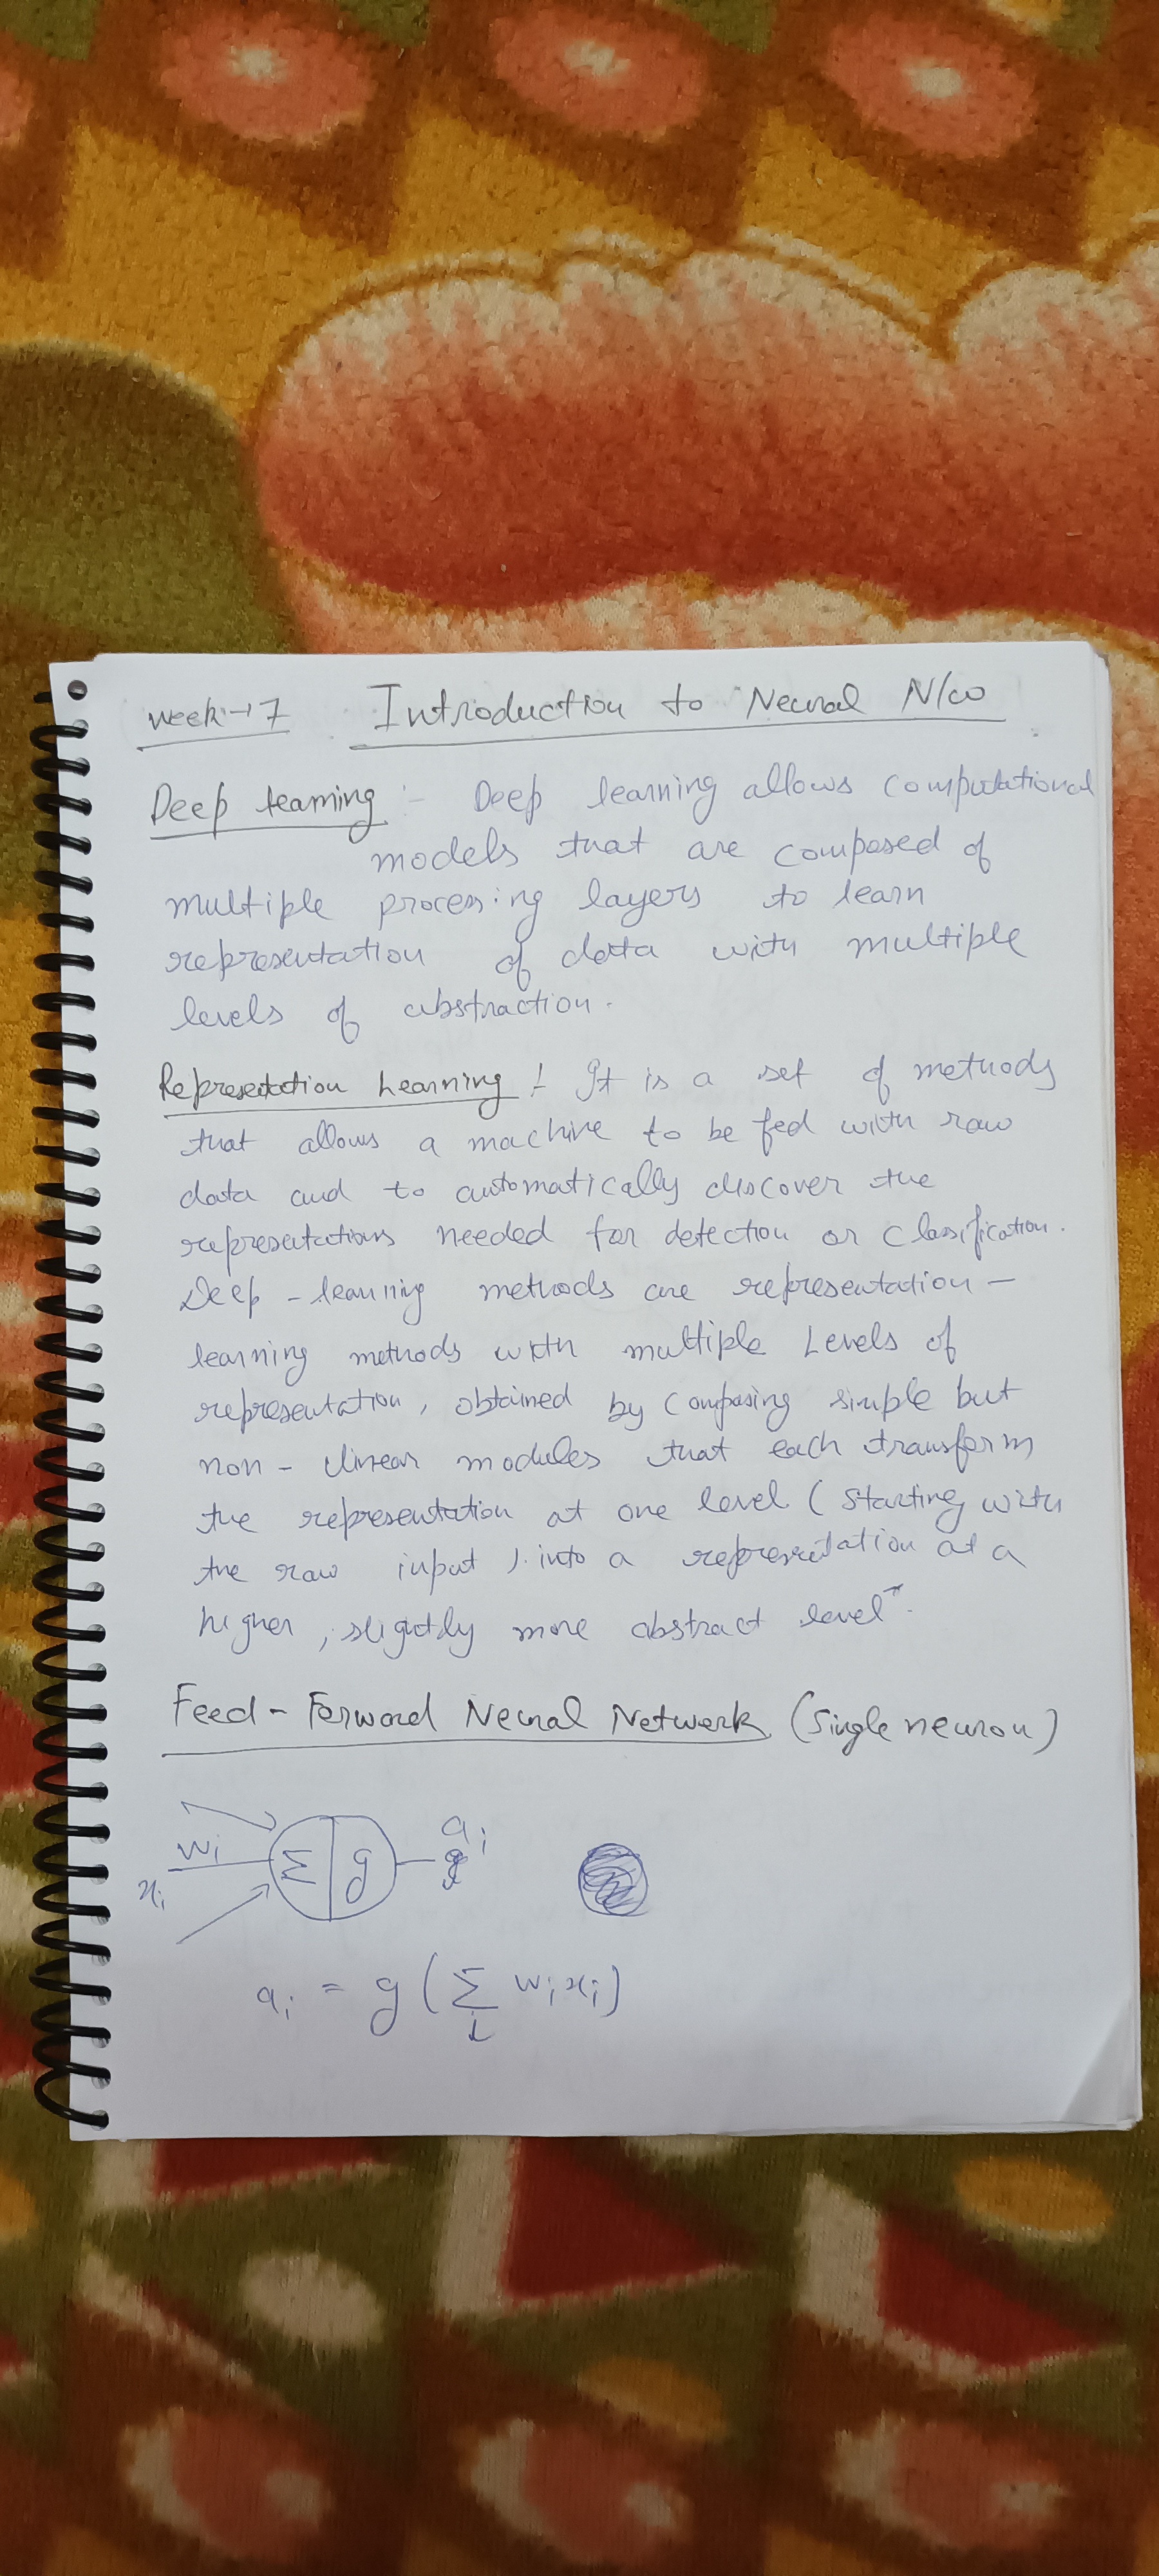 Week-7 Introduction to Neural N/w
Deep learning :- Deep learning allows computational
models that are composed of
multiple processing layers to learn
representation of data with multiple
levels of abstraction.
Representation Learning :- It is a set of methods
that allows a machine to be fed with raw
data and to automatically discover the
representations needed for detection or classification.
Deep-learning methods are representation-
learning methods with multiple Levels of
representation, obtained by composing simple but
non-linear modules that each transform
the representation at one level (starting with
the raw input) into a representation at a
higher, slightly more abstract level.
Feed-Forward Neural Network (Single neuron)
xi wi Σ g ai
ai = g (Σi wixi)